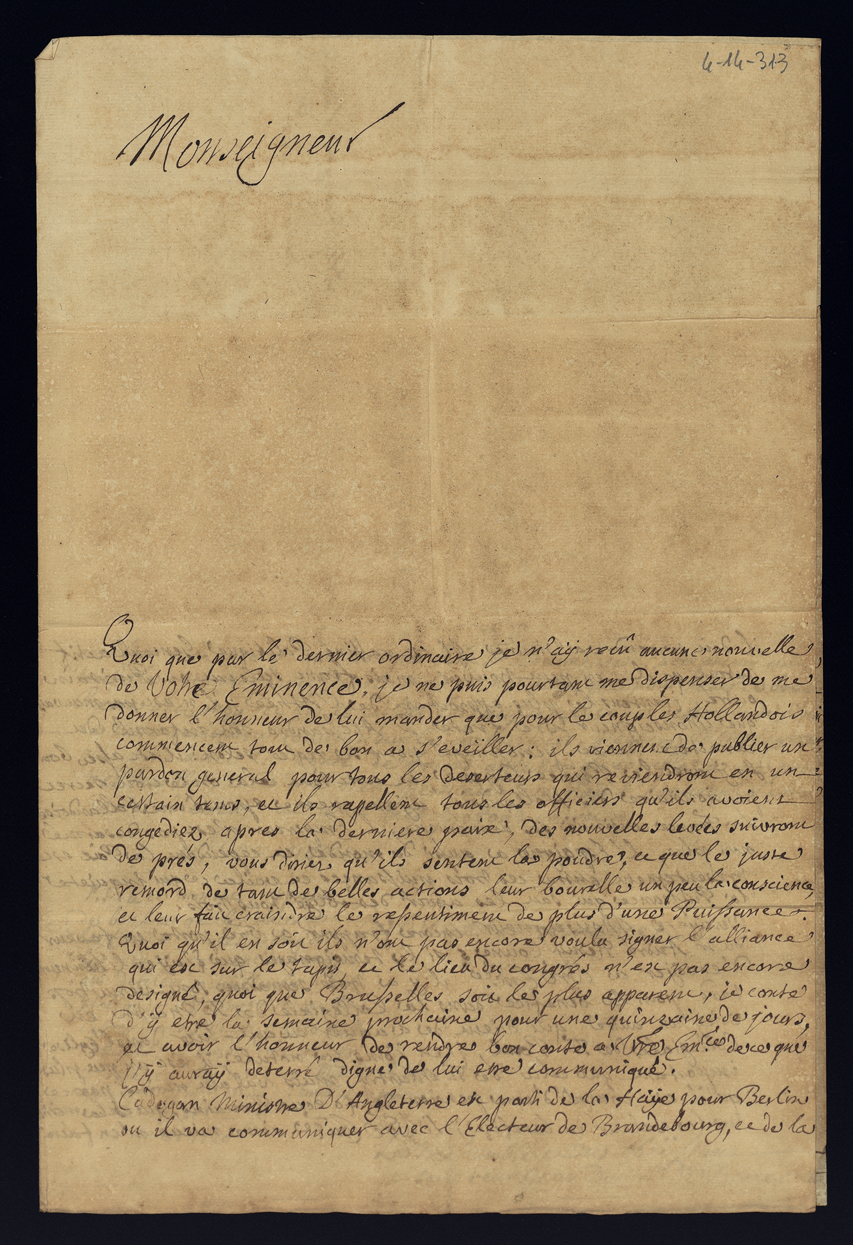 4-14-313
Monseigneur
Quoi que par le dernier ordinaire je n'aÿ recû aucune nouvelle
de Votre Eminence, je ne puis pourtant me dispenser de me
donner l'honneur de lui mander que pour le coup les Hollandois
commencent tout de bon a s'eveiller: ils viennent de publier un
pardon general pour tous les deserteurs qui reviendront en un
certain tems, et ils rapellent tous les officiers qu'ils avoient
congediez apres la derniere paix, des nouvelles levées suivront
de prés, vous diriez qu'ils sentent la poudre, et que le juste
remord de tant de belles actions leur bourelle un peu la conscience,
et leur fait craindre le ressentiment de plus d'une Puissance.
Quoi qu'il en soit ils n'ont pas encore voulu signer l'alliance
qui est sur le tapis, et le lieu du congrés n'est pas encore
designé, quoi que Brusselles soit le plus apparent, je conte
d'ÿ etre la semaine prochaine pour une quinzaine de jours,
et avoir l'honneur de rendre bon conte a Vtre Em.ce de ce que
j'ÿ auraÿ deterré digne de lui etre communiqué.
Cadogan Ministre D'Angleterre est parti de la Haÿe pour Berlin
ou il va communiquer avec l'Electeur de Brandebourg, et de la